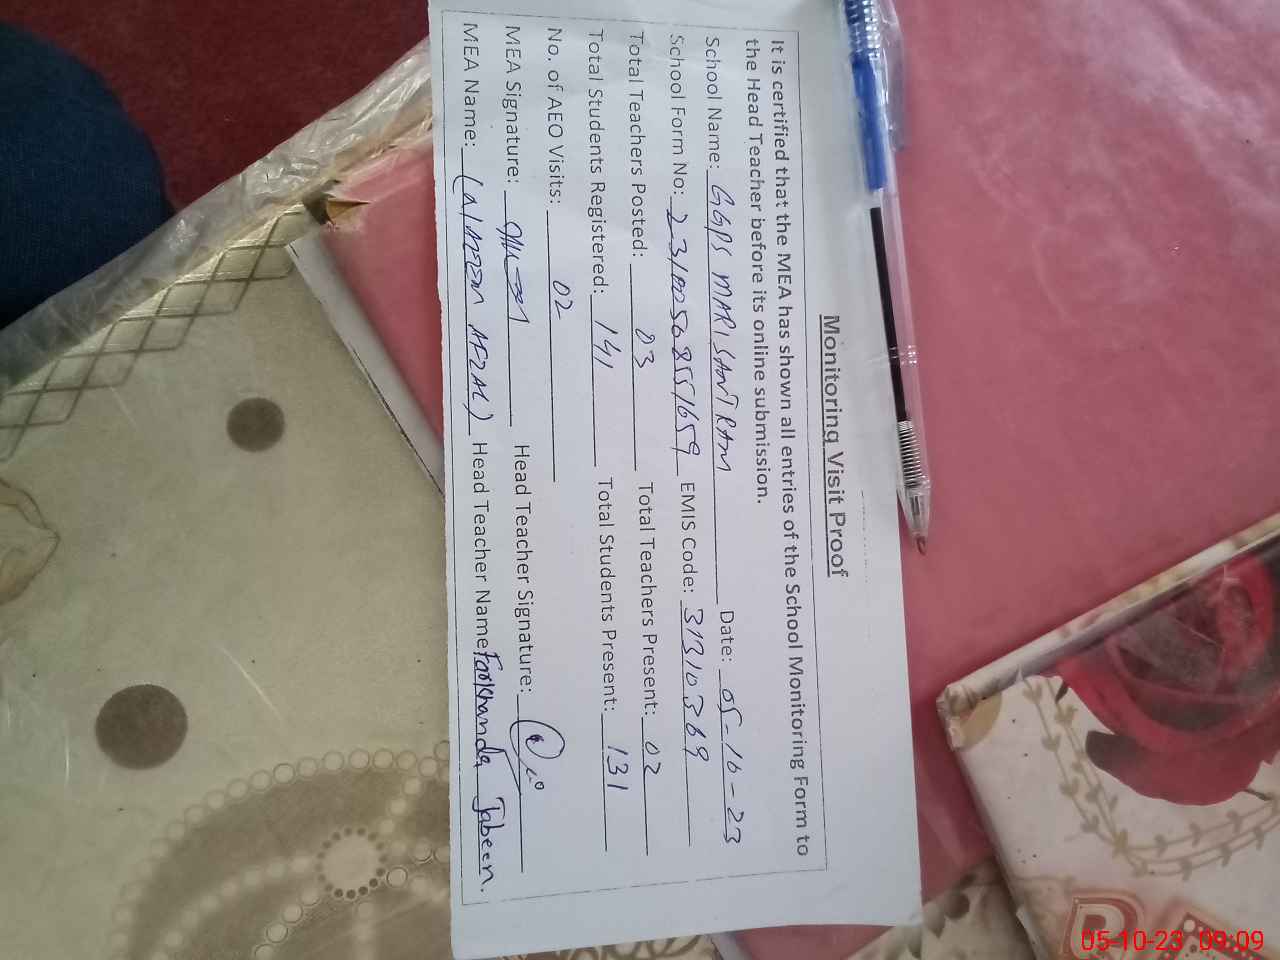 Monitoring Visit Proof
It is certified that the MEA has shown all entries of the School Monitoring Form to
the Head Teacher before its online submission.
School Name: GGPS MARI SANT RAM Date: 05-10-23
School Form No: EMIS Code: 31310369
Total Teachers Posted: 03 Total Teachers Present: 02
Total Students Registered: 141 Total Students Present: 131
No. of AEO Visits: 02
MEA Signature: Head Teacher Signature:
MEA Name: AFZAL) Head Teacher Name Farkhanda Jabeen.
05-10-23 09:09